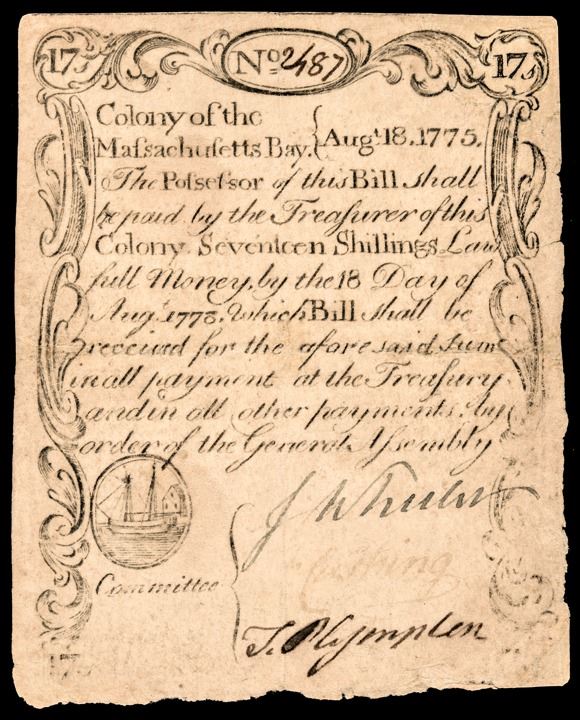 17. Nº 2487 17.
Colony of the
Maſsachuſetts Bay. { Augᵗ 18. 1775.
The Poſseſsor of this Bill shall
be paid by the Treaſurer of this
Colony. Seventeen Shillings Law
full Money, by the 18 Day of
Augᵗ 1778. Which Bill shall be
receivd for the aforesaid Sum
in all payment at the Treaſury
and in all other payments, by
order of the General Aſsembly
J Wheeler
Cushing
Committee
T. Plympton
17